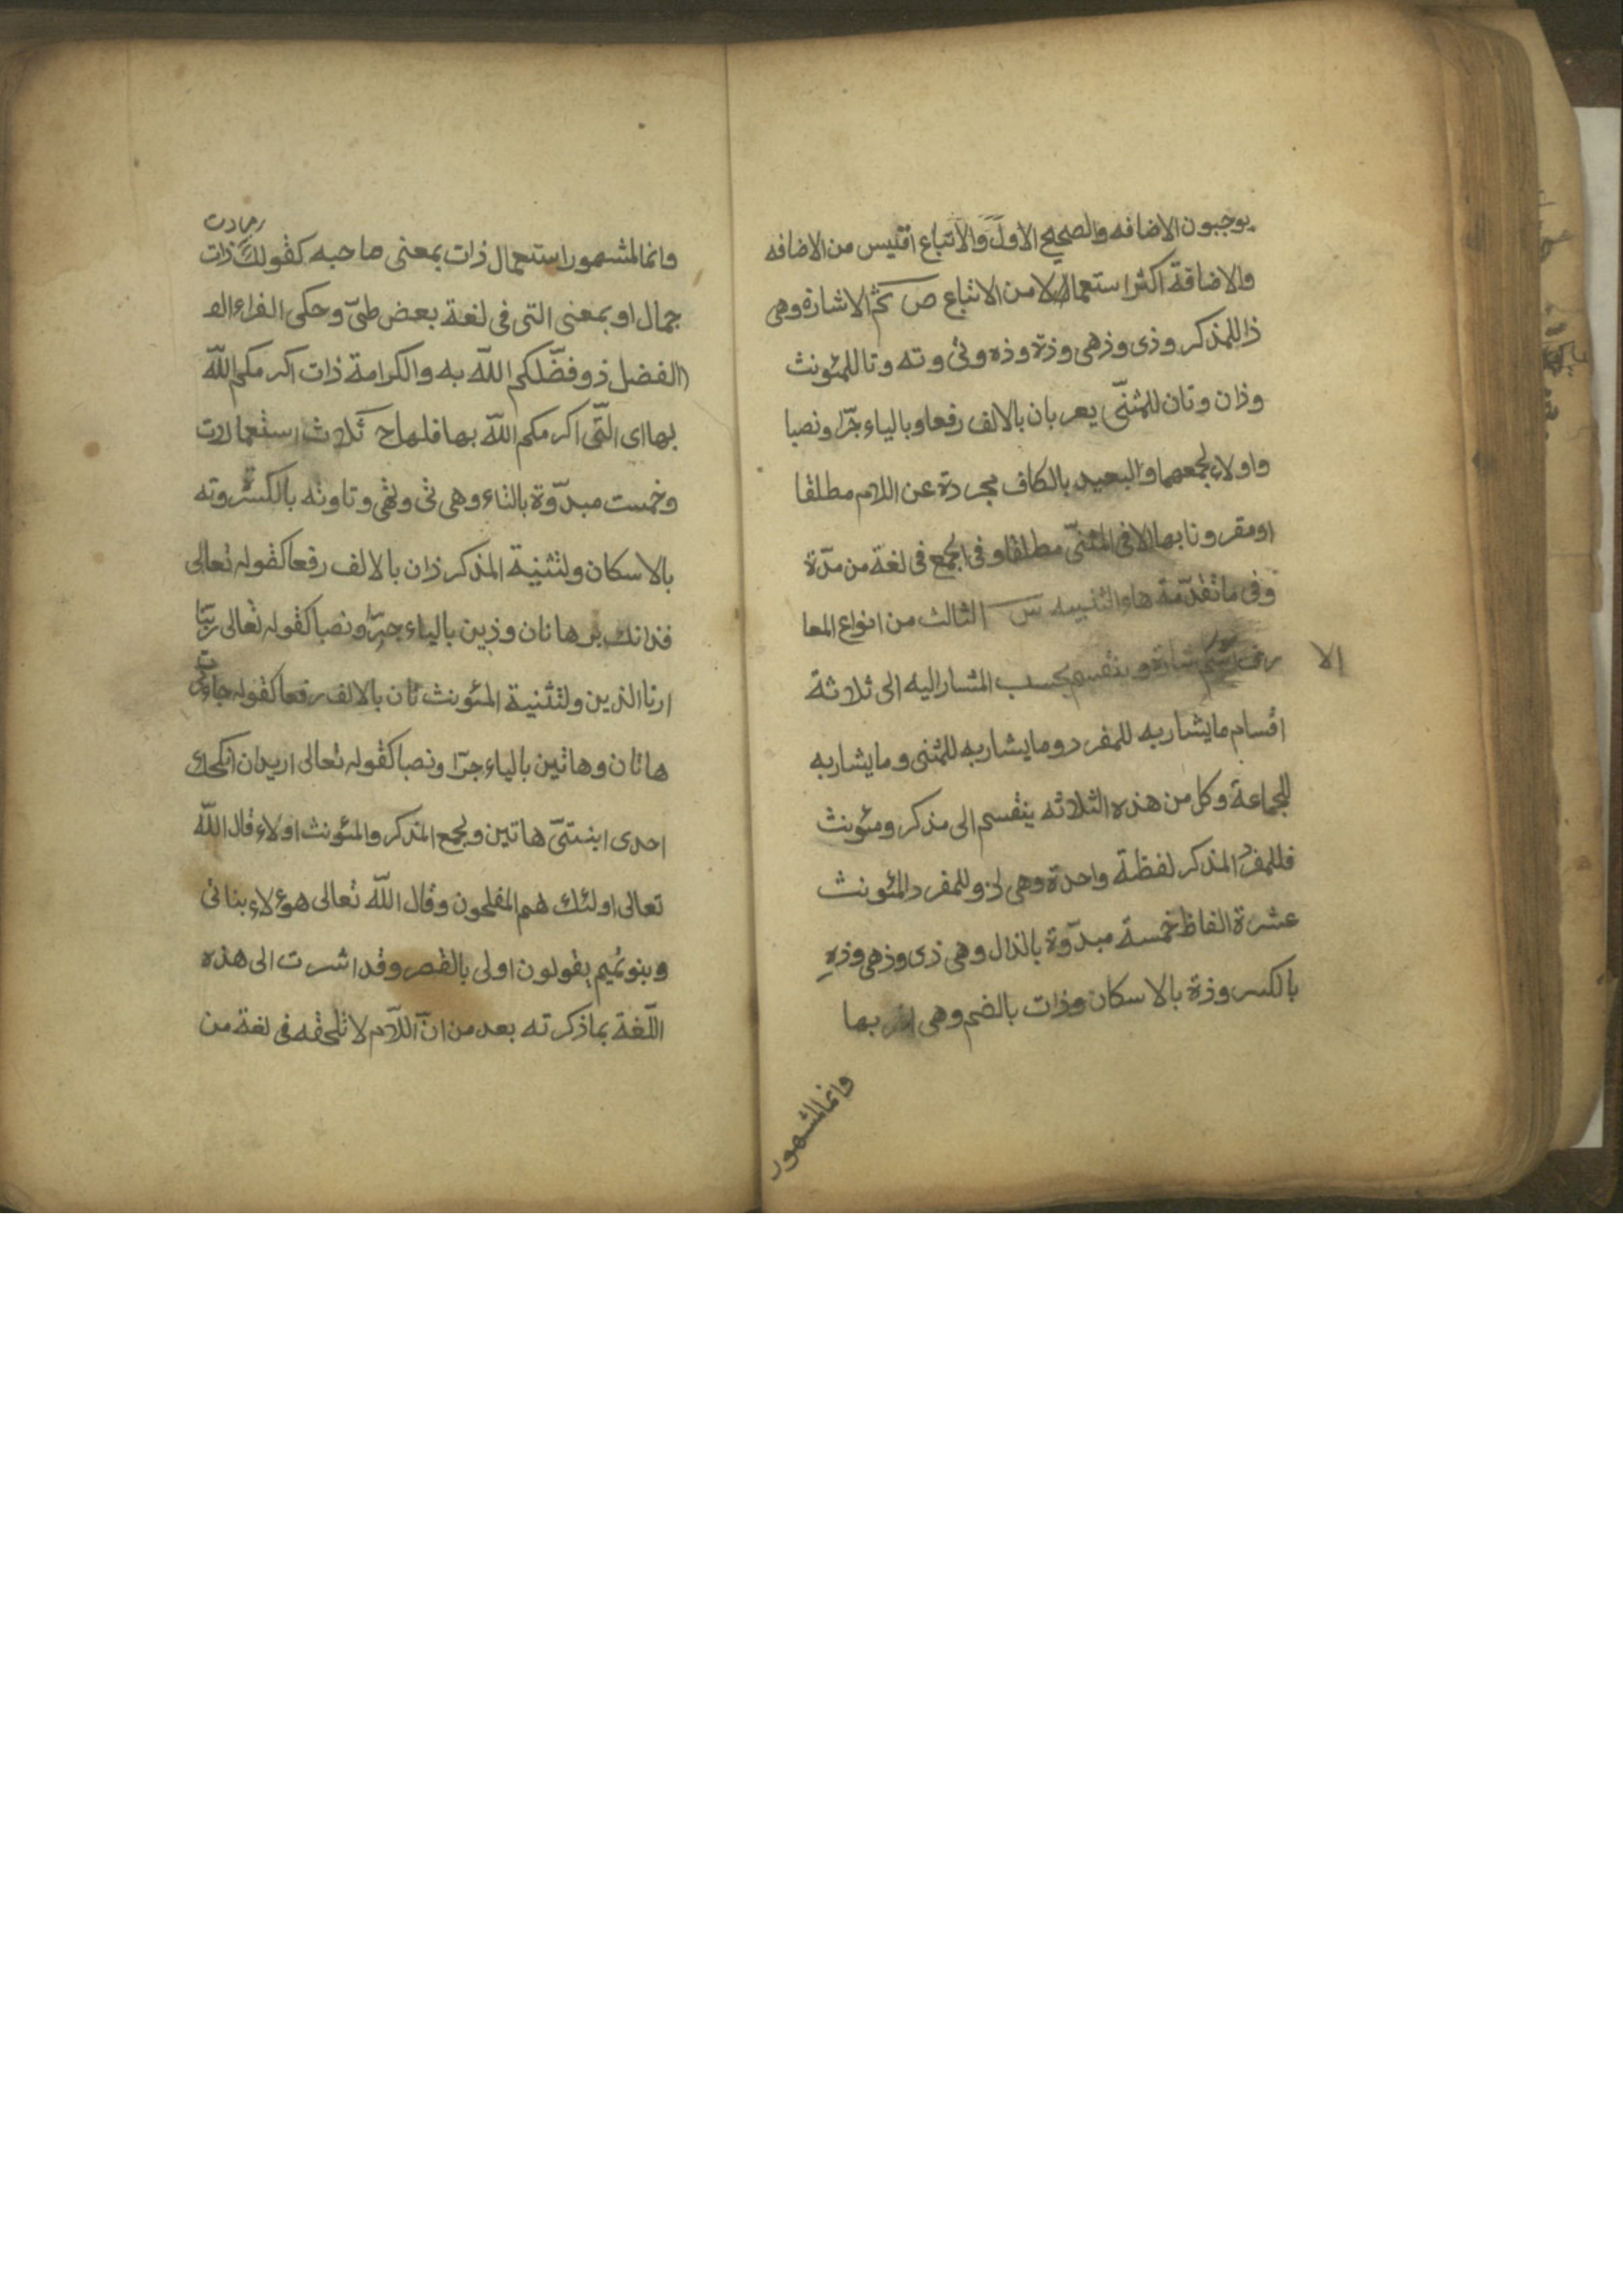 يوجبون الاضافه والصحيح الاول والاتباع اقيس من الاضافه
والاضافة اكثر استعمالا من الاتباع ص ثم الاشارة وهى
ذا للمذكر وذى وذهى وذة وذه وتى وته وتا للمئونث
وذان وتان للمثنّى يعربان بالالف رفعا وبالياء جرّا ونصبا
واولاء لجمعهما والبعيد بالكاف مجردة عن اللام مطلقا
او مقرونا بها الا فى المثنّى مطلقا وفى الجمع فى لغة من مدّة
وفى ما تقدّمة هاء التنبيه ش الثالث من انواع المعا
رف الاشارة وينقسم بحسب المشار اليه الى ثلاثة
الا
اقسام ما يشار به للمفرد وما يشار به للمثنى وما يشار به
للجماعة وكل من هذه الثلاثه ينقسم الى مذكر ومئونث
فللمفرد المذكر لفظة واحدة وهى ذ وللمفرد المئونث
عشرة الفاظ خمسة مبدّوة بالذال وهى ذى وذهى وذهِ
بالكسر وذة بالاسكان وذات بالضم وهى بها
وانما المشهور
وانما المشهور استعمال ذات بمعنى صاحبه كقولك ذات
جمال او بمعنى التى فى لغة بعض طىّ وحكى الفراء الفـ
(الفضل ذو فضّلكم اللّه به والكرامة ذات اكرمكم اللّه
بها اى الّتى اكرمكم اللّه بها فلها ح ثلاث استعمالات
وخمست مبدّوة بالتاء وهى تى وتهى وتا وته بالكسر وته
بالاسكان ولتثنية المذكر ذان بالالف رفعا كقوله تعالى
فذانك برهانان وذين بالياء جرّا ونصبا كقوله تعالى ربّنا
ارنا الذين ولتثنية المئونث تان بالالف رفعا كقوله جاءتنى
هاتان وهاتين بالياء جرّا ونصبا كقوله تعالى اريد ان انكحك
احدى ابنتىّ هاتين ولجمع المذكر والمئونث اولاء قال اللّه
تعالى اولئك هم المفلحون وقال اللّه تعالى هؤلاء بناتى
وبنو تميم يقولون اولى بالقصر وقد اشرت الى هذه
اللّغة بما ذكرته بعد من انّ اللّام لا تلحقه فى لغة من